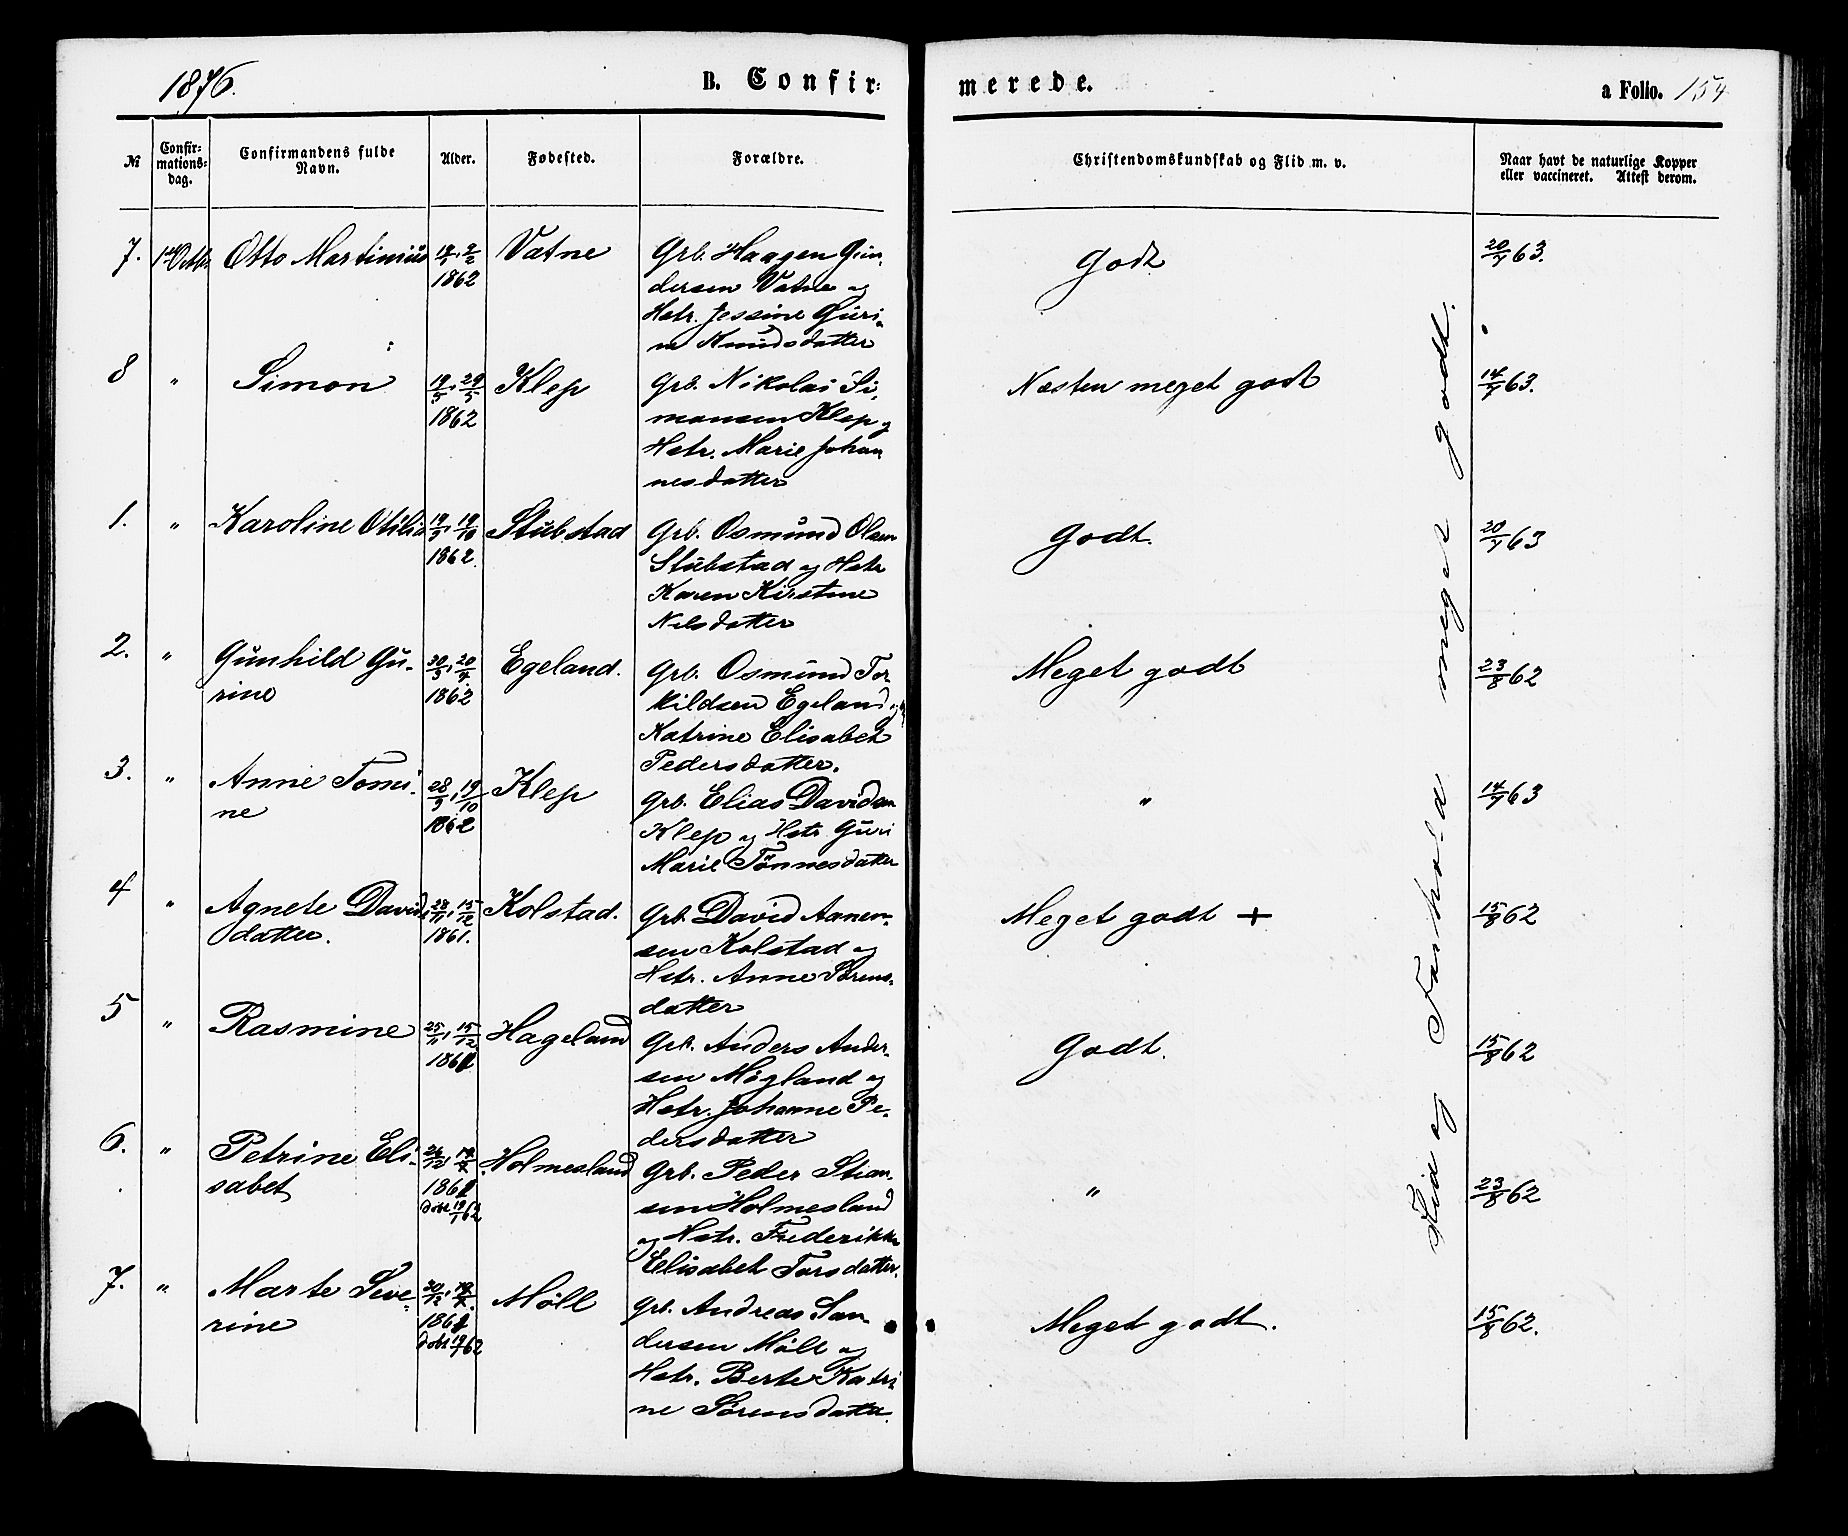 1876.
B. Confir-
merede.
a Folio. 154
№
Confir-
mations-
dag.
Confirmandens fulde
Navn.
Alder.
Fødested.
Forældre.
Christendomskundskab og Flid m. v.
Naar havt de naturlige Kopper
eller vaccineret. Attest derom.
7. 1ste Octbr Otto Martinius Vatne
1862
Grb. Haagen Gun-
dersen Vatne og
Hstr. Jessine Guri-
ne Knudsdatter
Godt
20/7 63.
8 " Simon 19/5, 29/5 Klep
1862
Grb. Nikolai Si-
monsen Klep og
Hstr. Marie Johan
nesdatter
Næsten meget godt
14/7 63.
1. " Karoline Otilia 19/10 Stubstad
1862.
Grb. Osmund Olsen
Stubstad og Hstr
Karen Kirstine
Nilsdatter
Godt.
20/7 63
2. " Gunhild Gu- 30/3, 20/4 Egeland.
rine 1862
Grb. Osmund Tor
kildsen Egeland og
Katrine Elisabet
Pedersdatter.
Meget godt
23/8 62
3. " Anne Tomi- 28/9, 19/10 Klep
ne 1862
Grb. Elias Davidsen
Klep og Hstr Guri
Marie Tønnesdatter
"
14/7 63
4 " Agnete Davids 28/11, 15/12 Kolstad.
datter. 1861.
Grb. David Aanen-
sen Kolstad og
Hstr. Anne Sørens-
datter
Meget godt +
15/8 62
5 " Rasmine 25/11, 15/12 Hageland
1861
Grb. Anders Ander-
sen Møgland og
Hstr. Johanne Pe-
dersdatter
Godt.
15/8 62
6. " Petrine Eli- Holmesland
sabet 1861
døbt 19/1 62
Grb. Peder Stian-
sen Holmesland
og Hstr. Frederikke
Elisabet Torsdatter.
"
23/8 62
7. " Marte Seve- Møll
rine 1861
døbt 19/1 62
Grb. Andreas San
dersen Møll og
Hstr. Berte Katri
ne Sørensdatter.
Meget godt.
15/8 62.
Flid og Forhold meget godt.